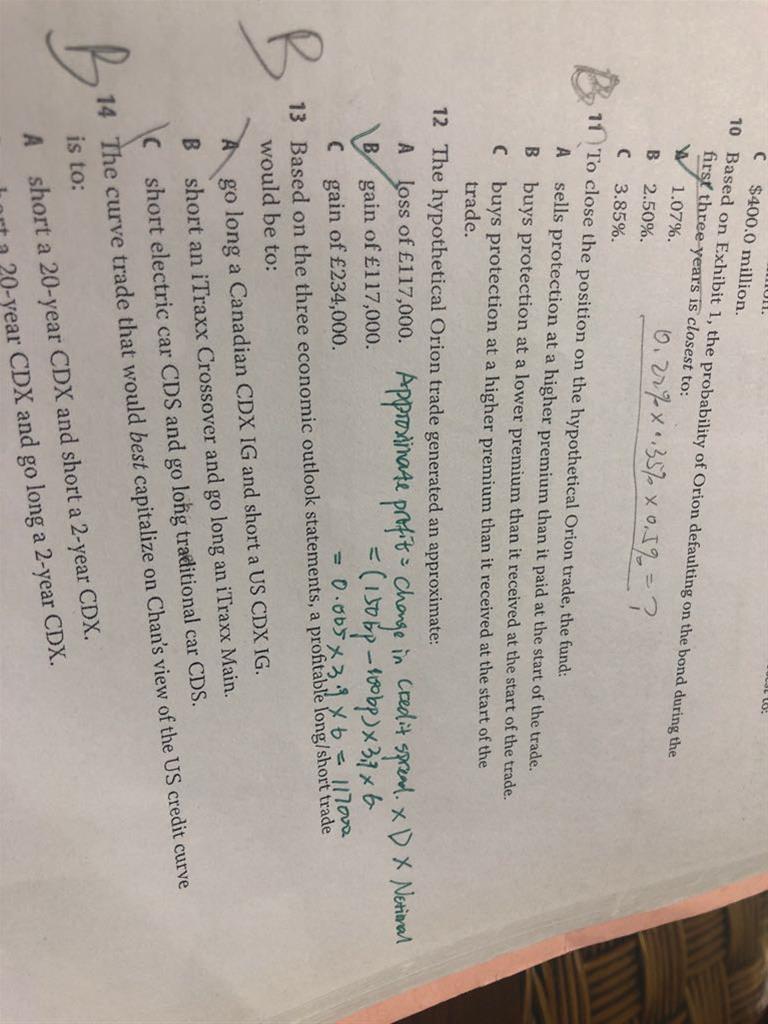 C $400.0 million.
10 Based on Exhibit 1, the probability of Orion defaulting on the bond during the
first three years is closest to:
A 1.07%.
B 2.50%.
C 3.85%.
0.22% × 0.35% × 0.5% = ?
B
11 To close the position on the hypothetical Orion trade, the fund:
A sells protection at a higher premium than it paid at the start of the trade.
B buys protection at a lower premium than it received at the start of the trade.
C buys protection at a higher premium than it received at the start of the
trade.
12 The hypothetical Orion trade generated an approximate:
A loss of £117,000.
B gain of £117,000.
C gain of £234,000.
Approximate profit = change in credit spread × D × Notional
= (150bp - 100bp) × 3.9 × 6
= 0.005 × 3.9 × 6 = 117000
B
13 Based on the three economic outlook statements, a profitable long/short trade
would be to:
A go long a Canadian CDX IG and short a US CDX IG.
B short an iTraxx Crossover and go long an iTraxx Main.
C short electric car CDS and go long traditional car CDS.
B
14 The curve trade that would best capitalize on Chan's view of the US credit curve
is to:
A short a 20-year CDX and short a 2-year CDX.
a 20-year CDX and go long a 2-year CDX.